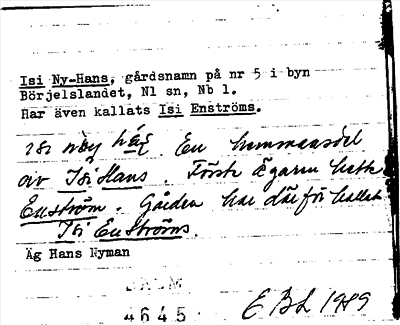 Isi Ny-Hans, gårdsnamn på nr 5 i byn
Börjelslandet, Nl sn, Nb l.
Har även kallats Isi Enströms.
isi En hemmansdel
av Isi Hans. Förste ägaren hette
Enström. Gården har därför kallats
Isi Enströms.
Äg Hans Nyman
4645
E Bh 1989